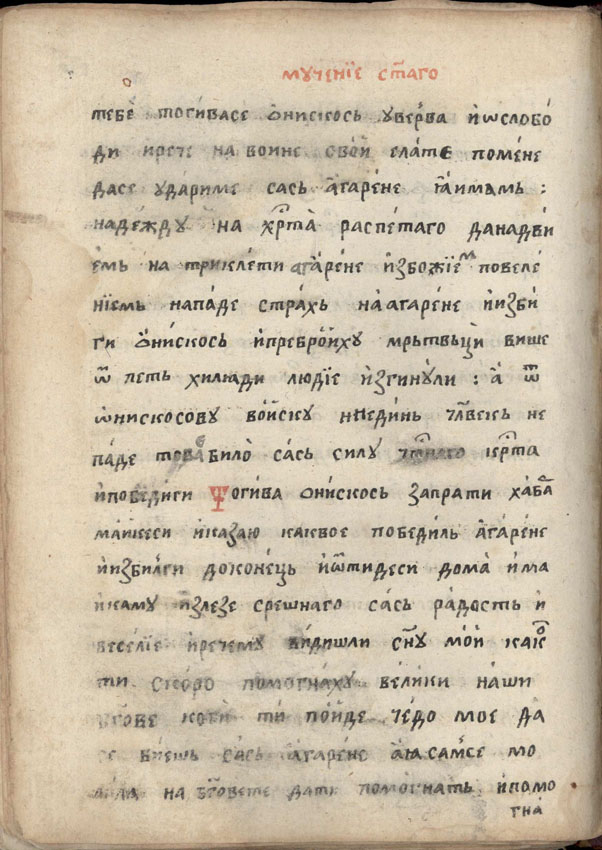 мꙋченїе ст҃аго
тебѐ тогивасе ѻнискось ꙋверва и҆ѡслобо́
ди и҆рече на воине свои҆ елате помене
дасе ꙋдариме сась а҆гарене та҆имамь :
надеждꙋ на хрⷭ҇та̀ распетаго данадви
емь на триклѐти ага́рене и҆збожїеⷨ повеле́
нїемь напа́де стра́хь на́агарене и҆изби
ги ѻни́скось и҆преброи҆хꙋ мрьтвьци више
ѿ петь хилꙗди людїе и҆згинꙋли : а҆ ѿ
ѡ҆нискосовꙋ вои҆скꙋ ниеди́нь чл҃векь не
па́де това било̀ са́сь силꙋ чтⷭ҇наго крⷭ҇та
и҆победиги Тогива ѻнискось запрати хаба
ма́икеси и҆казаю каквое победиль а҆гарене
и҆избилги доконець и҆ѿидеси дома̀ и҆ма
и҆камꙋ излезе срешнаго сась ра́дость и҆
веселїе и҆речемꙋ ви́дишли сн҃ꙋ мои҆ како
ти ско́ро помогна́хꙋ ве́лики на́ши
бг҃ове кога̀ ти пои҆де че́до мое да
се биешь сась а҆гарене а҆ꙗ самсе мо
лила на бг҃овете дати помогнать и҆помо
гна̀